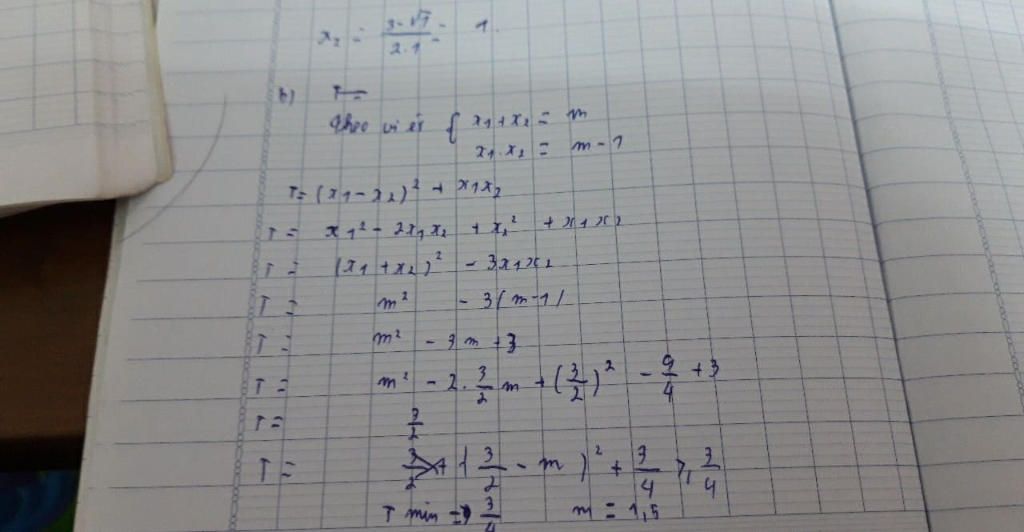 x₂ = (3-√1)/(2.1) = 1.
b) T=
theo vi ét { x₁+x₂ = m
x₁.x₂ = m-1
T=(x₁-x₂)² + x₁x₂
T= x₁² - 2x₁x₂ + x₂² + x₁x₂
T= (x₁+x₂)² - 3x₁x₂
T= m² - 3(m-1)
T= m² - 3m + 3
T= m² - 2. 3/2 m + (3/2)² - 9/4 + 3
T= 3/2
T= (3/2 - m)² + 3/4 ≥ 3/4
T min = 3/4 m = 1,5